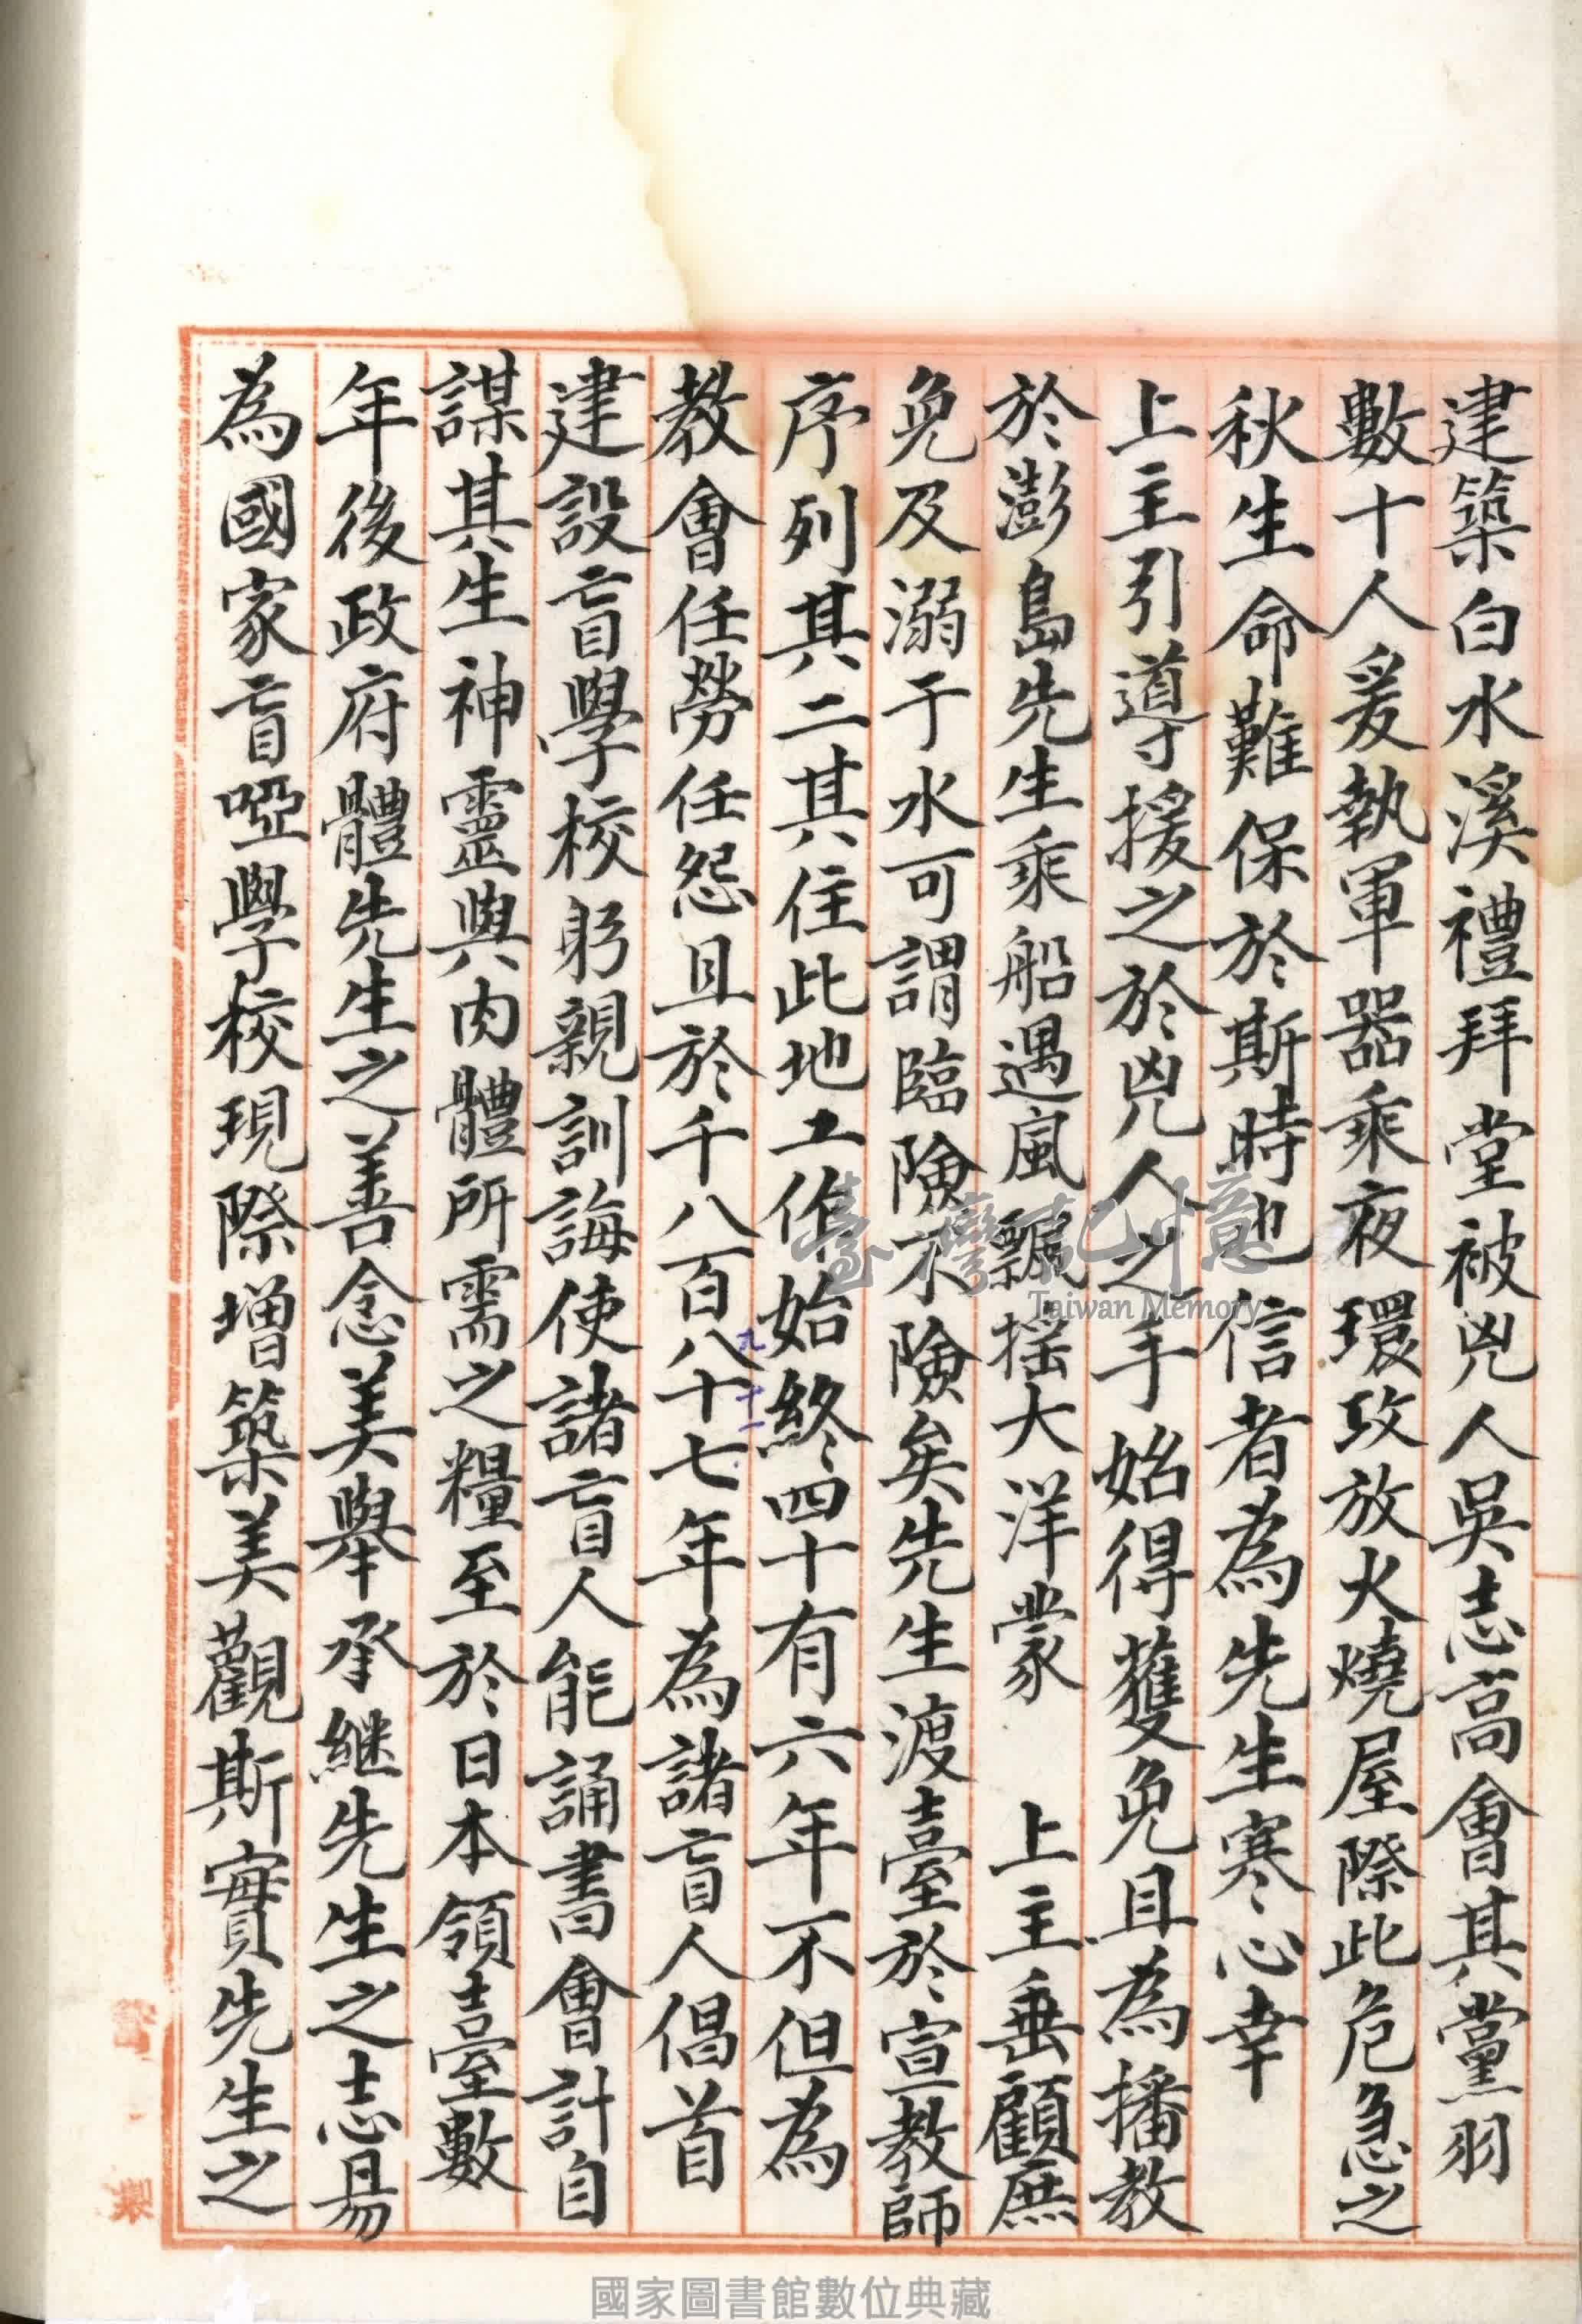 建築白水溪禮拜堂被兇人吳志高會其黨羽
數十人爰執軍器乘夜環攻放火燒屋際此危急之
秋生命難保於斯時也信者為先生寒心幸
上主引導援之於兇人之手始得獲免且為播教
於澎島先生乘船遇風飄搖大洋蒙　上主垂顧庶
免及溺于水可謂臨險不險矣先生渡臺於宣教師
序列其二其住此地工作始終四十有六年不但為
教會任勞任怨且於千八百八十七年為諸盲人倡首
九十一
建設盲學校躬親訓誨使諸盲人能誦書會計自
謀其生神靈與肉體所需之糧至於日本領臺數
年後政府體先生之善念美舉承継先生之志易
為國家盲啞學校現際增築美觀斯實先生之
臺灣記憶
Taiwan Memory
國家圖書館數位典藏